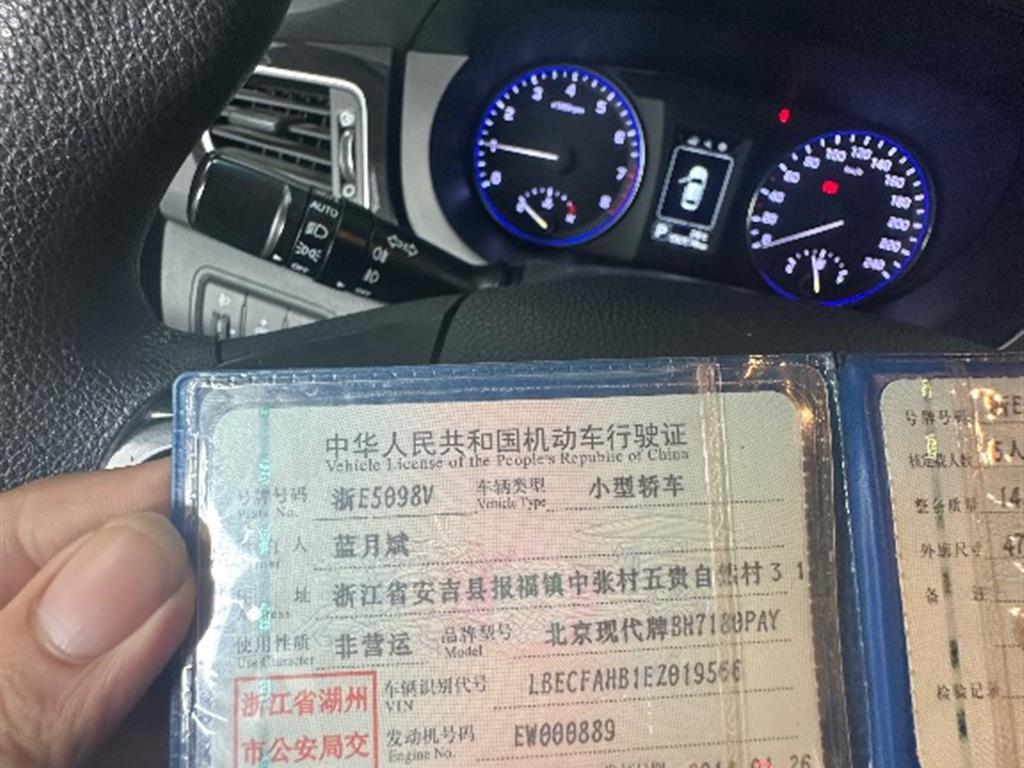 AUTO
OFF
OFF
0
1
2
3
4
5
6
7
8
x1000rpm
P
0
20
40
60
80
100
120
140
160
180
200
220
240
km/h
中华人民共和国机动车行驶证
Vehicle License of the People's Republic of China
号牌号码 浙E5098V 车辆类型 小型轿车
Plate No. Vehicle Type
人 蓝月斌
址 浙江省安吉县报福镇中张村五贵自然村31
使用性质 非营运 品牌型号 北京现代牌BH7180PAY
Use Character Model
浙江省湖州
市公安局交
车辆识别代号 LBECFAHB1EZ019566
VIN
发动机号码 EW000889
Engine No.
号牌号码
核定载人数 5人
整备质量 14
外廓尺寸 47
备 注
检验记录